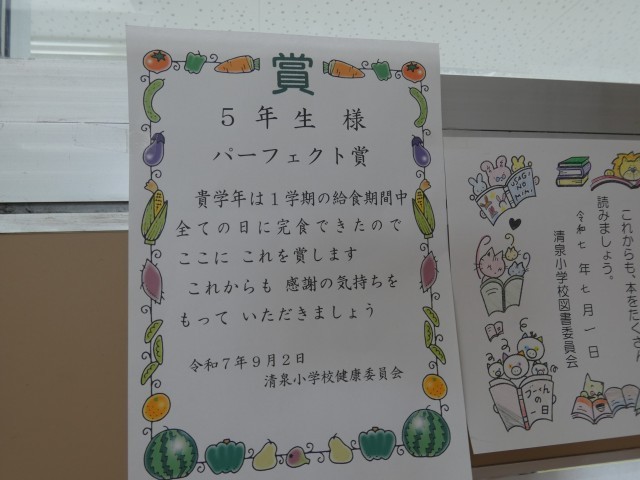 賞
5年生 様
パーフェクト賞
貴学年は1学期の給食期間中
全ての日に完食できたので
ここに これを賞します
これからも 感謝の気持ちを
もって いただきましょう
令和7年9月2日
清泉小学校健康委員会
これからも、本をたくさん
読みましょう。
令和七年七月一日
清泉小学校図書委員会